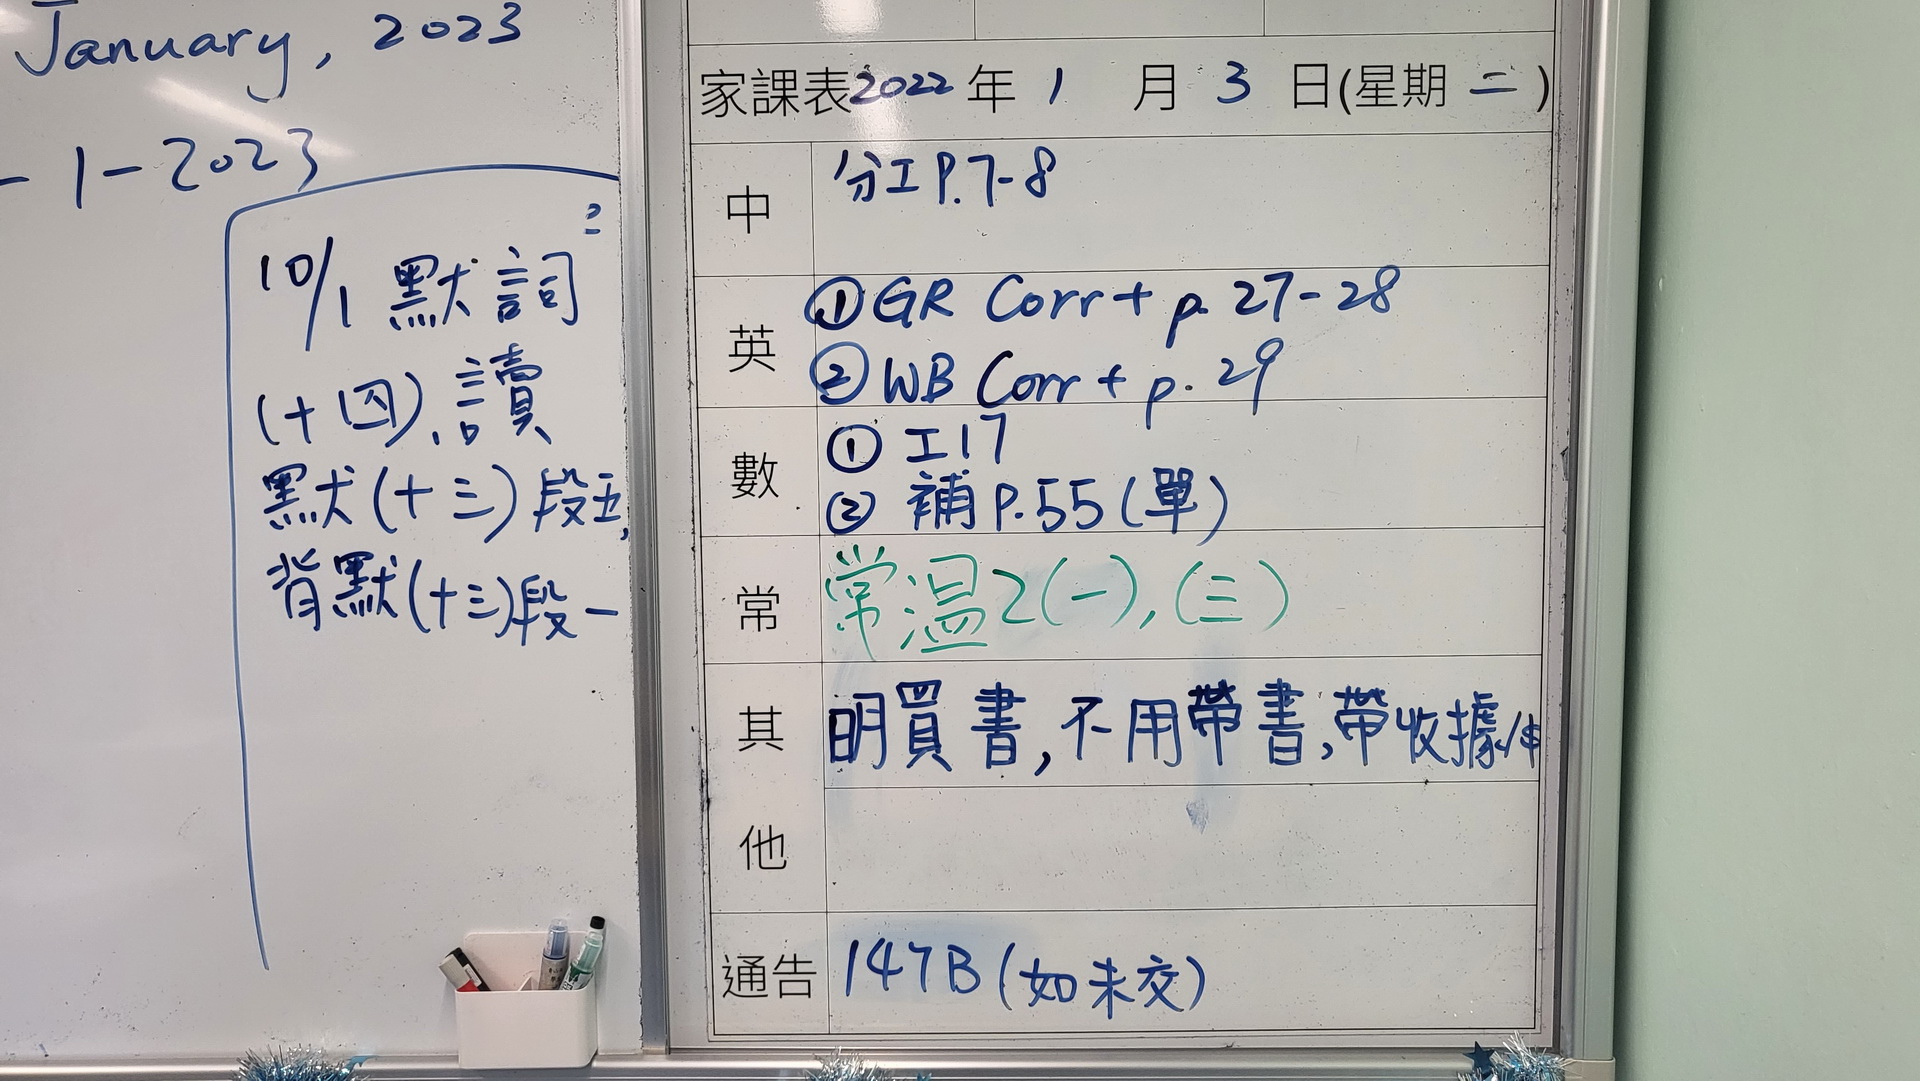 January, 2023
- 1-2023
10/1 默詞
(十四), 讀
默(十三)段五,
背默(十三)段一
家課表2022年 1 月 3 日(星期 二 )
中
分工P.7-8
英
①GR Corr + p. 27-28
②WB Corr + p. 29
數
① 工17
② 補P.55(單)
常
常溫2(一), (三)
其他
明買書,不用帶書,帶收據/
通告
147B(如未交)